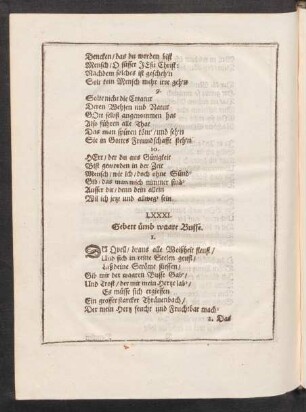 Dencken/ das du worden bist
Mensch/ O süsser JEsu Christ:
Nachdem solches ist gescheh'n
Solt kein Mensch mehr irre geh'n
9.
Solte nicht die Creatur
Deren Wesen und Natur
GOtt selbst angenommen hat
Also führen alle That
Das man spüren könt'/ und seh'n
Sie in Gottes Freundschafft steh'n.
10.
HErr/ der du aus Gütigkeit
Bist geworden in der Zeit
Mensch/ wie ich/ doch ohne Sünd'
Gib/ das man mich nimmer find'
Ausser dir/ denn dein allein
Wil ich jetzt und allweg' sein.
LXXXI.
Gebett ümb waare Busse.
1.
DU Quell/ draus alle Weisheit fleust/
Und sich in reine Seelen geust/
Laß deine Ströme fliessen/
Gib mir der waaren Busse Gab'/
Und Trost/ der mir mein Hertze lab'/
Es müsse sich ergiessen
Ein grosser starcker Thränenbach/
Der mein Hertz feucht und Fruchtbar mach'
2. Das